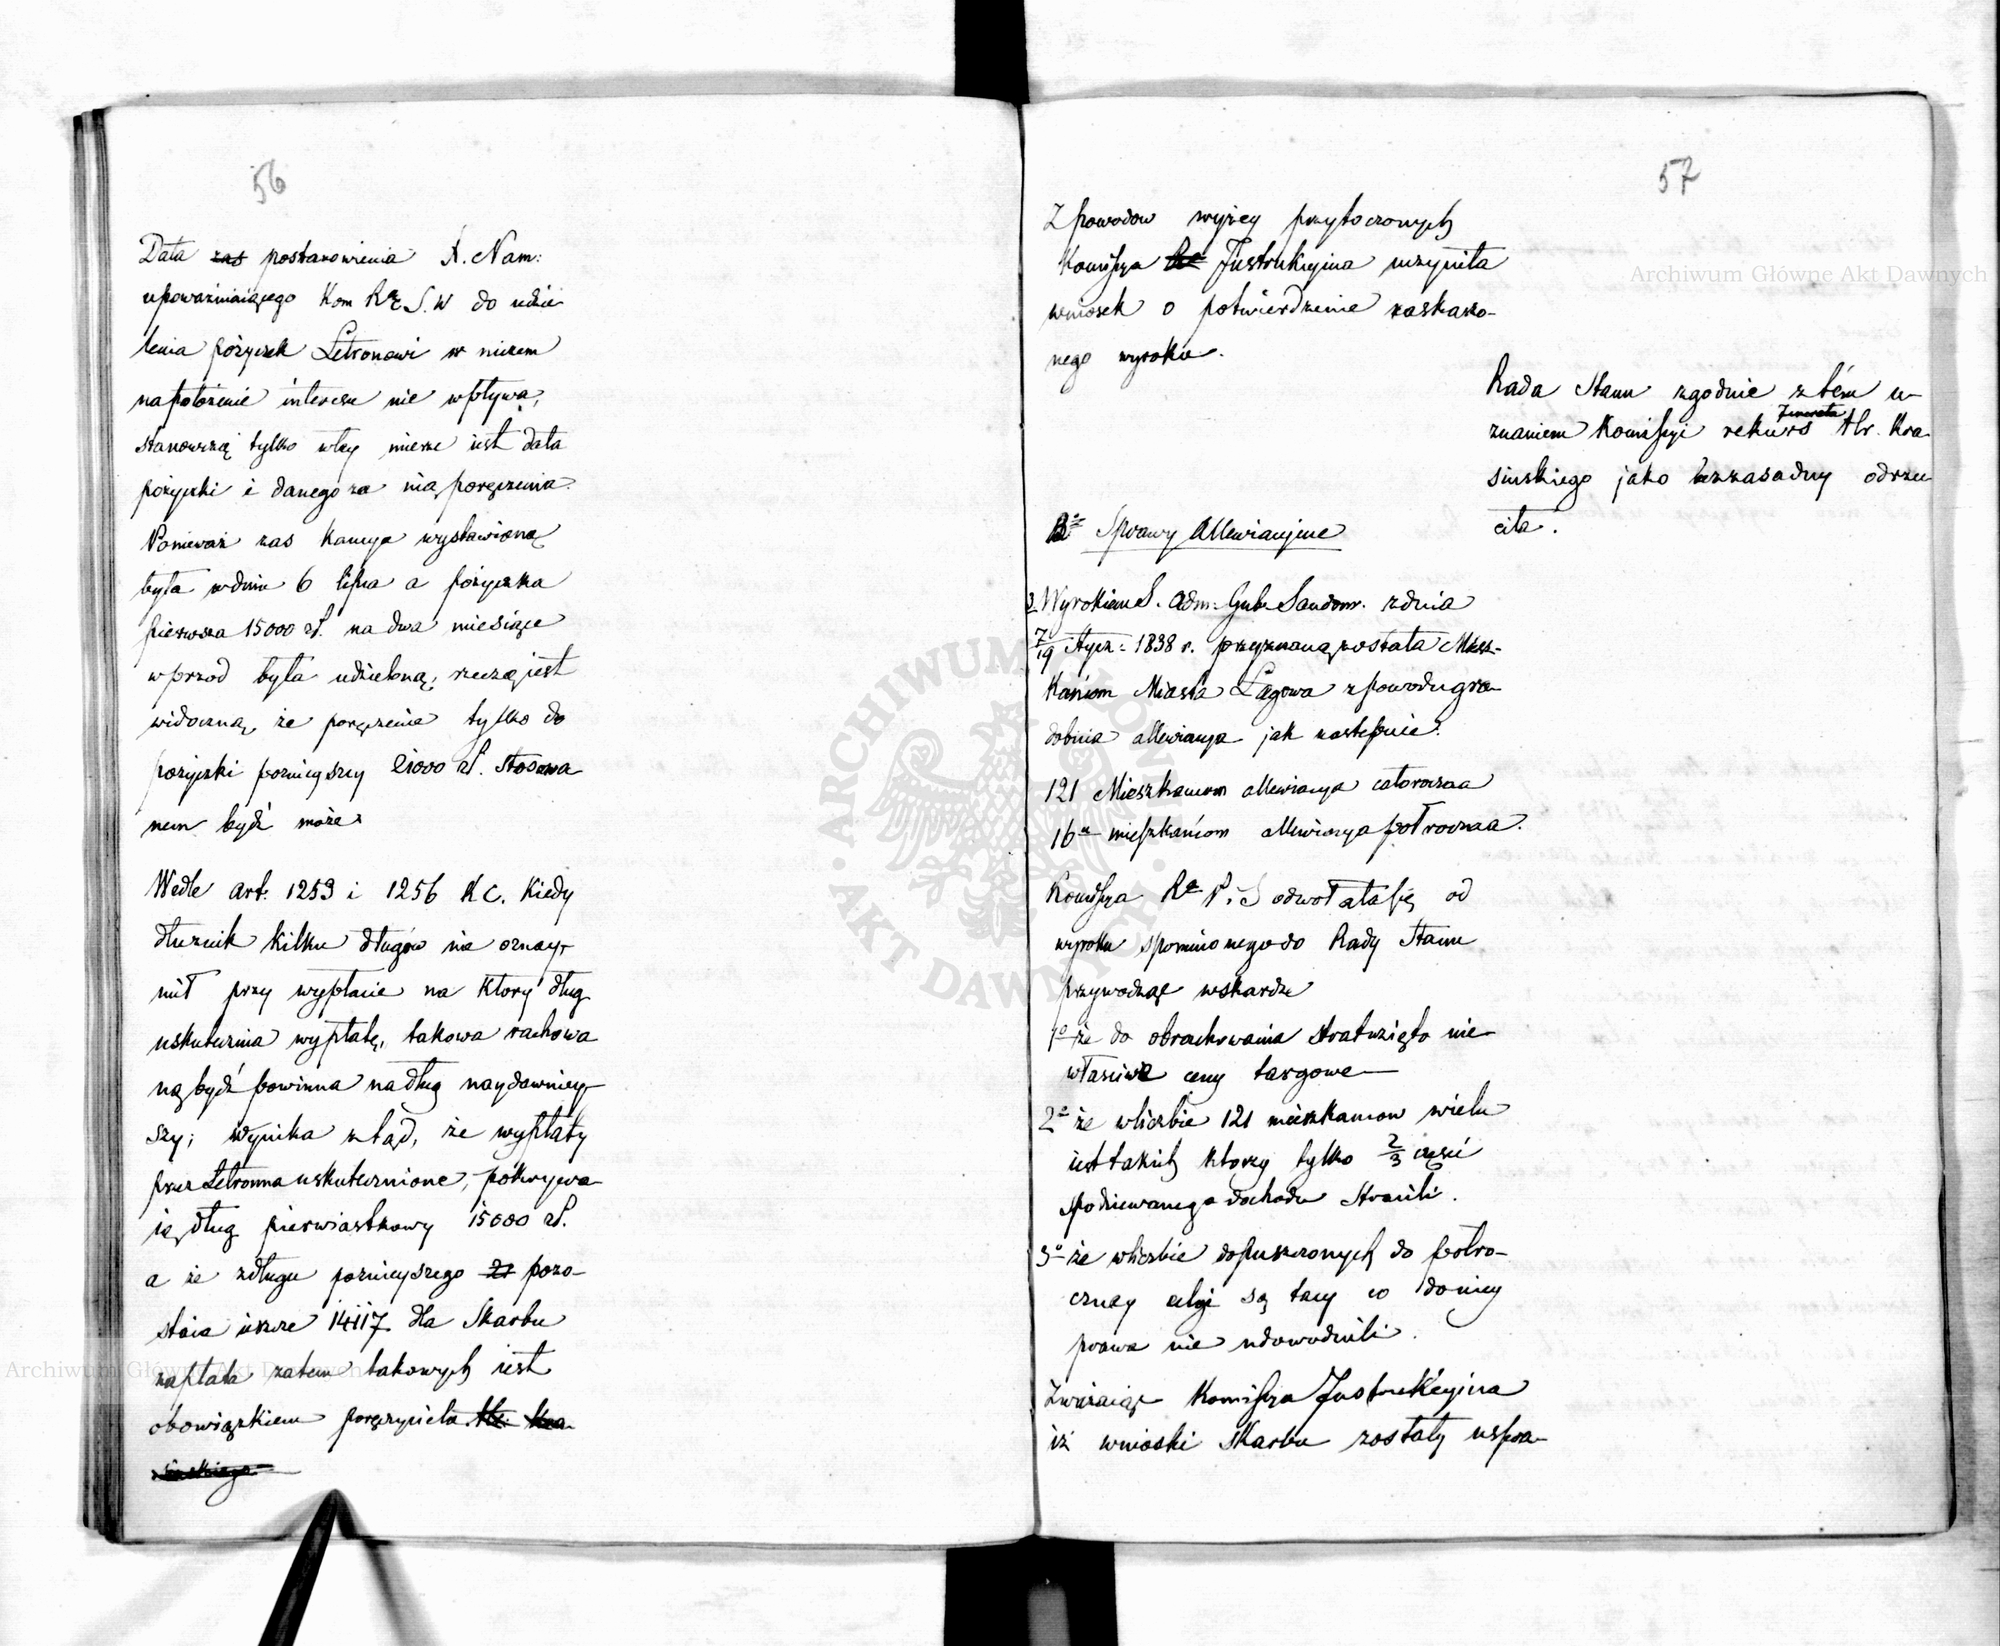 56
Data zas postanowienia X. Nam:
upoważniaiącego Kom Rz. S. W do udzie
lenia pożyczek Letronowi w niczem
na położenie interesu nie wpływa,
stanowczą tylko w tey mierze iest data
pożyczki i danego za nią poręczenia.
Ponieważ zas kaucya wystawioną
była w dniu 6 lipca a pożyczka
pierwsza 15000 zł. na dwa miesiące
wprzod była udzieloną, rzeczą iest
widoczną, że poręczenie tylko do
pożyczki poznieyszey 21000 zł. stosowa
nem bydź może.
Wedle art. 1253 i 1256 K C. Kiedy
dłuznik kilku długów nie oznay-
mił przy wypłacie na który dług
uskutecznia wypłatę, takowa rachowa
ną bydź powinna na dług naydawniey-
szy; wynika ztąd, że wypłaty
przez Letronna uskutecznione, pokrywa
ią dług pierwiastkowy 15000 zł.
a że z długu poznieyszego 21 pozo-
staie ieszcze 14117 dla Skarbu
zapłata zatem takowych iest
obowiązkiem poręczyciela Hr. Kra-
sinskiego
57
Z powodow wyżey przytoczonych
Kommissya Rz Instrukcyina uczyniła
wniosek o potwierdzenie zaskarżo-
nego wyroku.
Rada Stanu zgodnie z tém u-
znaniem Kommissyi rekurs Generała Hr. Kra-
sinskiego jako bezzasadny odrzu-
ciła.
B. Sprawy Allewiacyine
2 Wyrokiem S. Adm: Gub. Sandom. z dnia
7/19 Stycz: 1838 r. przyznaną została Miesz-
kańcom Miasta Łagowa z powodu gra-
dobicia allewiacya jak następuie:
121 Mieszkancom allewiacya całoroczna
16u mieszkańcom allewiacya półroczna.
Kommissya Rz P. i S odwołała się od
wyroku spomnionego do Rady Stanu
przywodząc w skardze
1o że do obrachowania strat wzięto nie-
właściwe ceny targowe
2o że w liczbie 121 mieszkancow wielu
iest takich którzy tylko 2/3 części
spodziewanego dochodu stracili.
3o że w liczbie dopuszczonych do półro-
czney ulgi są tacy co do niey
prawa nie udowodnili.
Zważaiąc Kommissya Instrukcyina
iż wnioski Skarbu zostały uspra-
Archiwum Główne Akt Dawnych
Archiwum Główne Akt Dawnych
ARCHIWUM GŁÓWNE AKT DAWNYCH